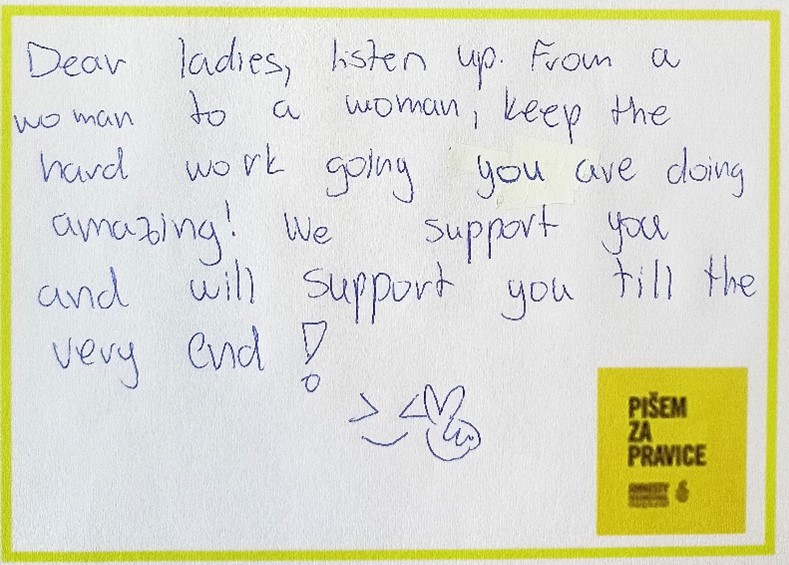 Dear ladies, listen up. From a
woman to a woman, keep the
hard work going you are doing
amazing! We support you
and will support you till the
very end!
PIŠEM
ZA
PRAVICE
AMNESTY